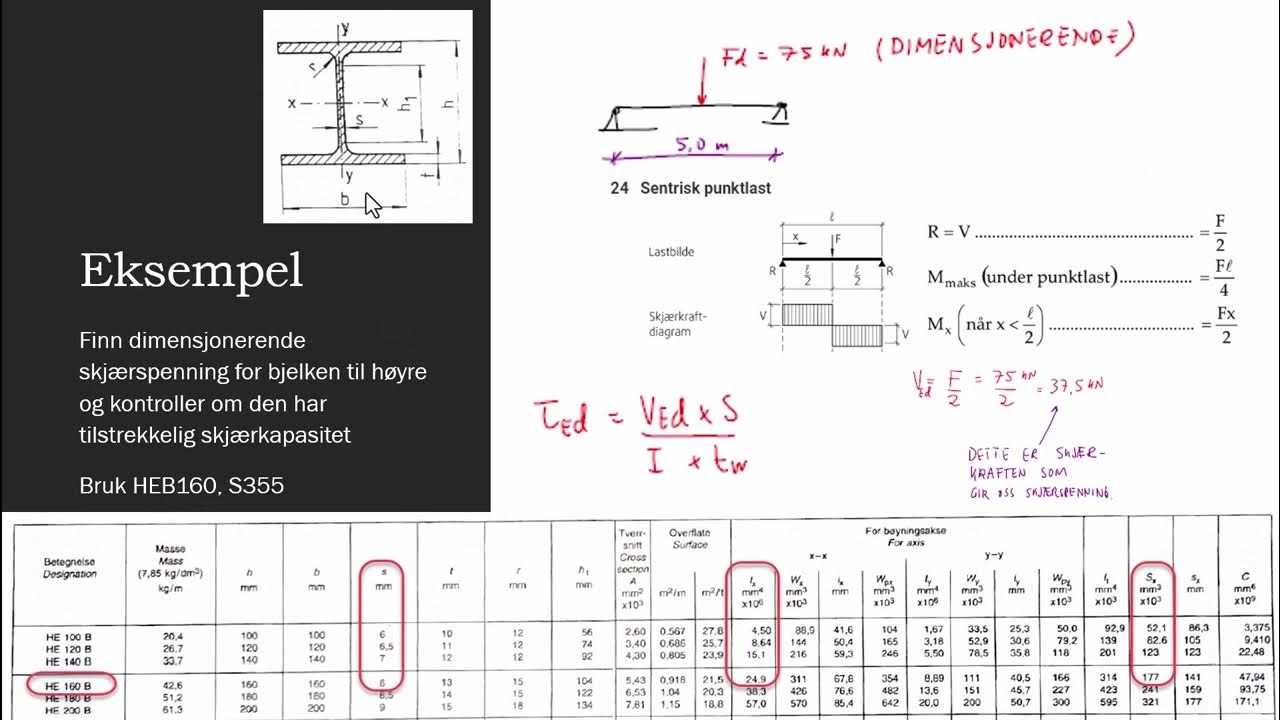 y
r
x
x
h₁
h
s
y
t
b
Eksempel
Finn dimensjonerende
skjærspenning for bjelken til høyre
og kontroller om den har
tilstrekkelig skjærkapasitet
Bruk HEB160, S355
Fd = 75 kN (DIMENSJONERENDE)
5,0 m
24 Sentrisk punktlast
Lastbilde
ℓ
x
F
R
R
ℓ/2
ℓ/2
Skjærkraft-
diagram
V
V
R = V ............................................ = F/2
M maks (under punktlast)................ = Fℓ/4
Mx (når x < ℓ/2) ................................ = Fx/2
VEd = F/2 = 75 kN/2 = 37,5 kN
DETTE ER SKJÆR-
KRAFTEN SOM
GIR OSS SKJÆRSPENNING.
τEd = VEd × S / I × tw
Betegnelse Designation | Masse Mass (7,85 kg/dm³) kg/m | h mm | b mm | s mm | t mm | r mm | h₁ mm | Tverr-snitt Cross section A mm² x10³ | Overflate Surface m²/m | m²/t | For bøyningsakse For axis x–x Ix mm⁴ x10⁶ | Wx mm³ x10³ | ix mm | Wpx mm³ x10³ | y–y Iy mm⁴ x10⁶ | Wy mm³ x10³ | iy mm | Wpy mm³ x10³ | It mm⁴ x10³ | Sx mm³ x10³ | sx mm | C mm⁶ x10⁹
HE 100 B 20,4 100 100 6 10 12 56 2,60 0,567 27,8 4,50 88,9 41,6 104 1,67 33,5 25,3 50,0 92,9 52,1 86,3 3,375
HE 120 B 26,7 120 120 6,5 11 12 74 3,40 0,686 25,7 8,64 144 50,4 165 3,18 52,9 30,6 79,2 139 82,6 105 9,410
HE 140 B 33,7 140 140 7 12 12 92 4,30 0,805 23,9 15,1 216 59,3 246 5,50 78,5 35,8 118 201 123 123 22,48
HE 160 B 42,6 160 160 8 13 15 104 5,43 0,918 21,5 24,9 311 67,8 354 8,89 111 40,5 166 314 177 141 47,94
HE 180 B 51,2 180 180 8,5 14 15 122 6,53 1.04 20,3 38,3 426 76,6 482 13,6 151 45,7 227 423 241 159 93,75
HE 200 B 61,3 200 200 9 15 18 134 7,81 1.15 18,8 57,0 570 85,4 642 20,0 200 50,7 300 595 321 177 171,1